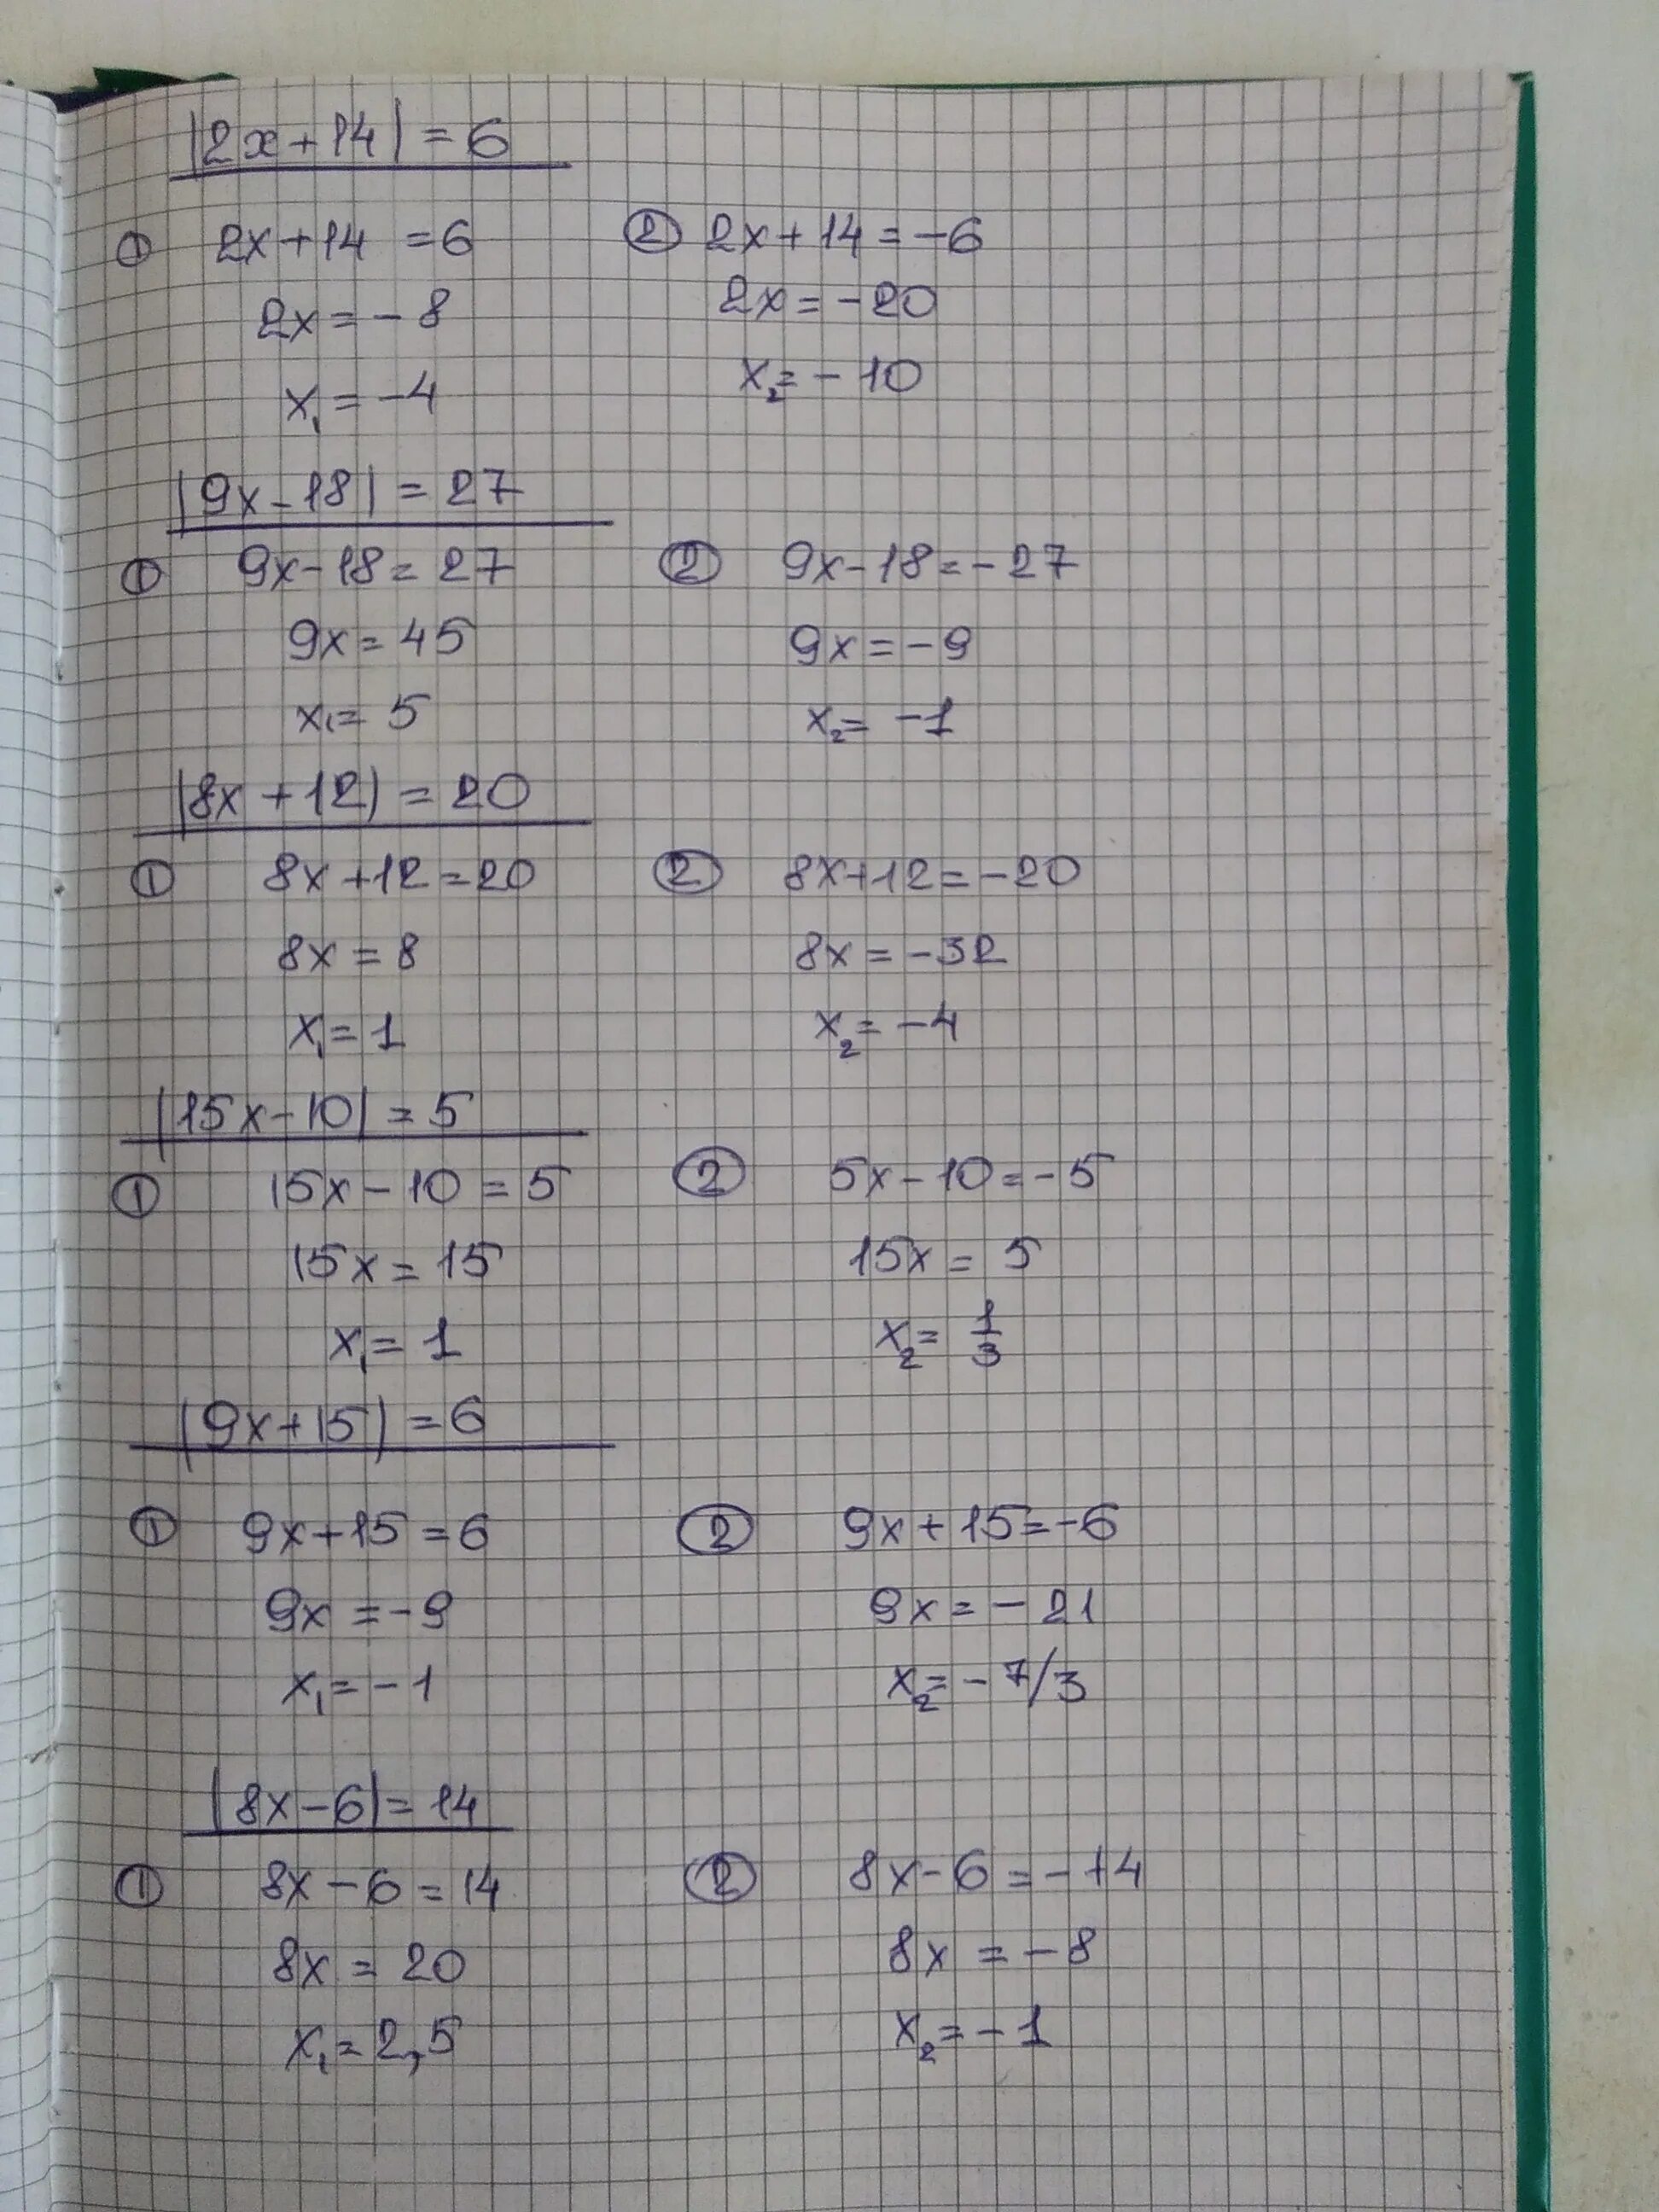 |2x+14| = 6
① 2x+14 = 6 ② 2x+14 = -6
2x = -8 2x = -20
x₁ = -4 x₂ = -10
|9x-18| = 27
① 9x-18 = 27 ② 9x-18 = -27
9x = 45 9x = -9
x₁ = 5 x₂ = -1
|8x+12| = 20
① 8x+12 = 20 ② 8x+12 = -20
8x = 8 8x = -32
x₁ = 1 x₂ = -4
|15x-10| = 5
① 15x-10 = 5 ② 5x-10 = -5
15x = 15 15x = 5
x₁ = 1 x₂ = 1/3
|9x+15| = 6
① 9x+15 = 6 ② 9x+15 = -6
9x = -9 9x = -21
x₁ = -1 x₂ = -7/3
|8x-6| = 14
① 8x-6 = 14 ② 8x-6 = -14
8x = 20 8x = -8
x₁ = 2,5 x₂ = -1